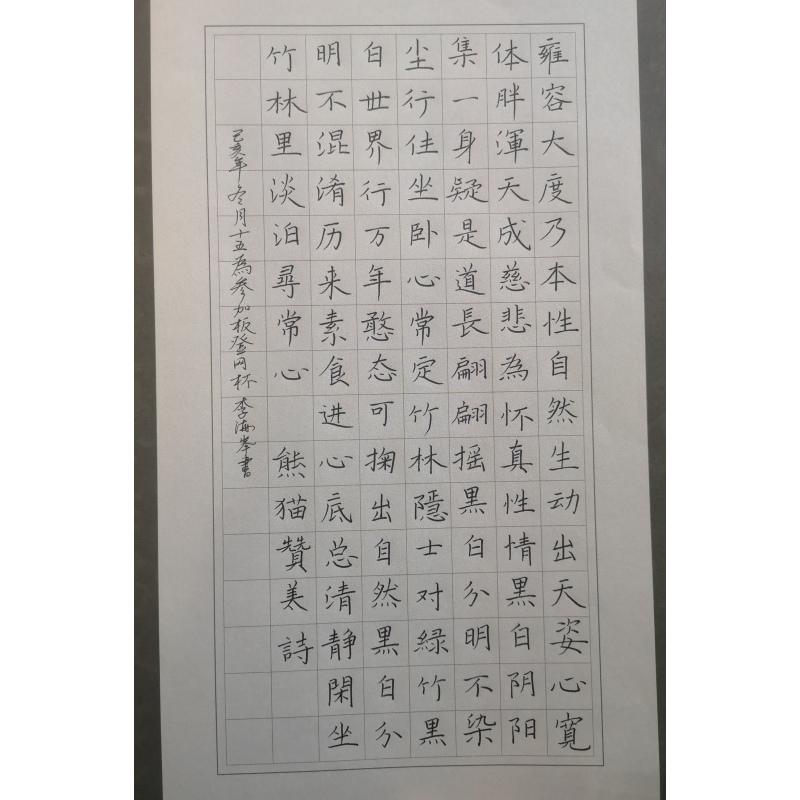 雍容大度乃本性自然生动出天姿心寬
体胖渾天成慈悲為怀真性情黒白阴阳
集一身疑是道長翩翩摇黒白分明不染
尘行住坐卧心常定竹林隱士对緑竹黒
白世界行万年憨态可掬出自然黒白分
明不混淆历来素食进心底总清静閑坐
竹林里淡泊尋常心 熊猫贊美詩
己亥年冬月十五為参加板登网杯 李海峯書